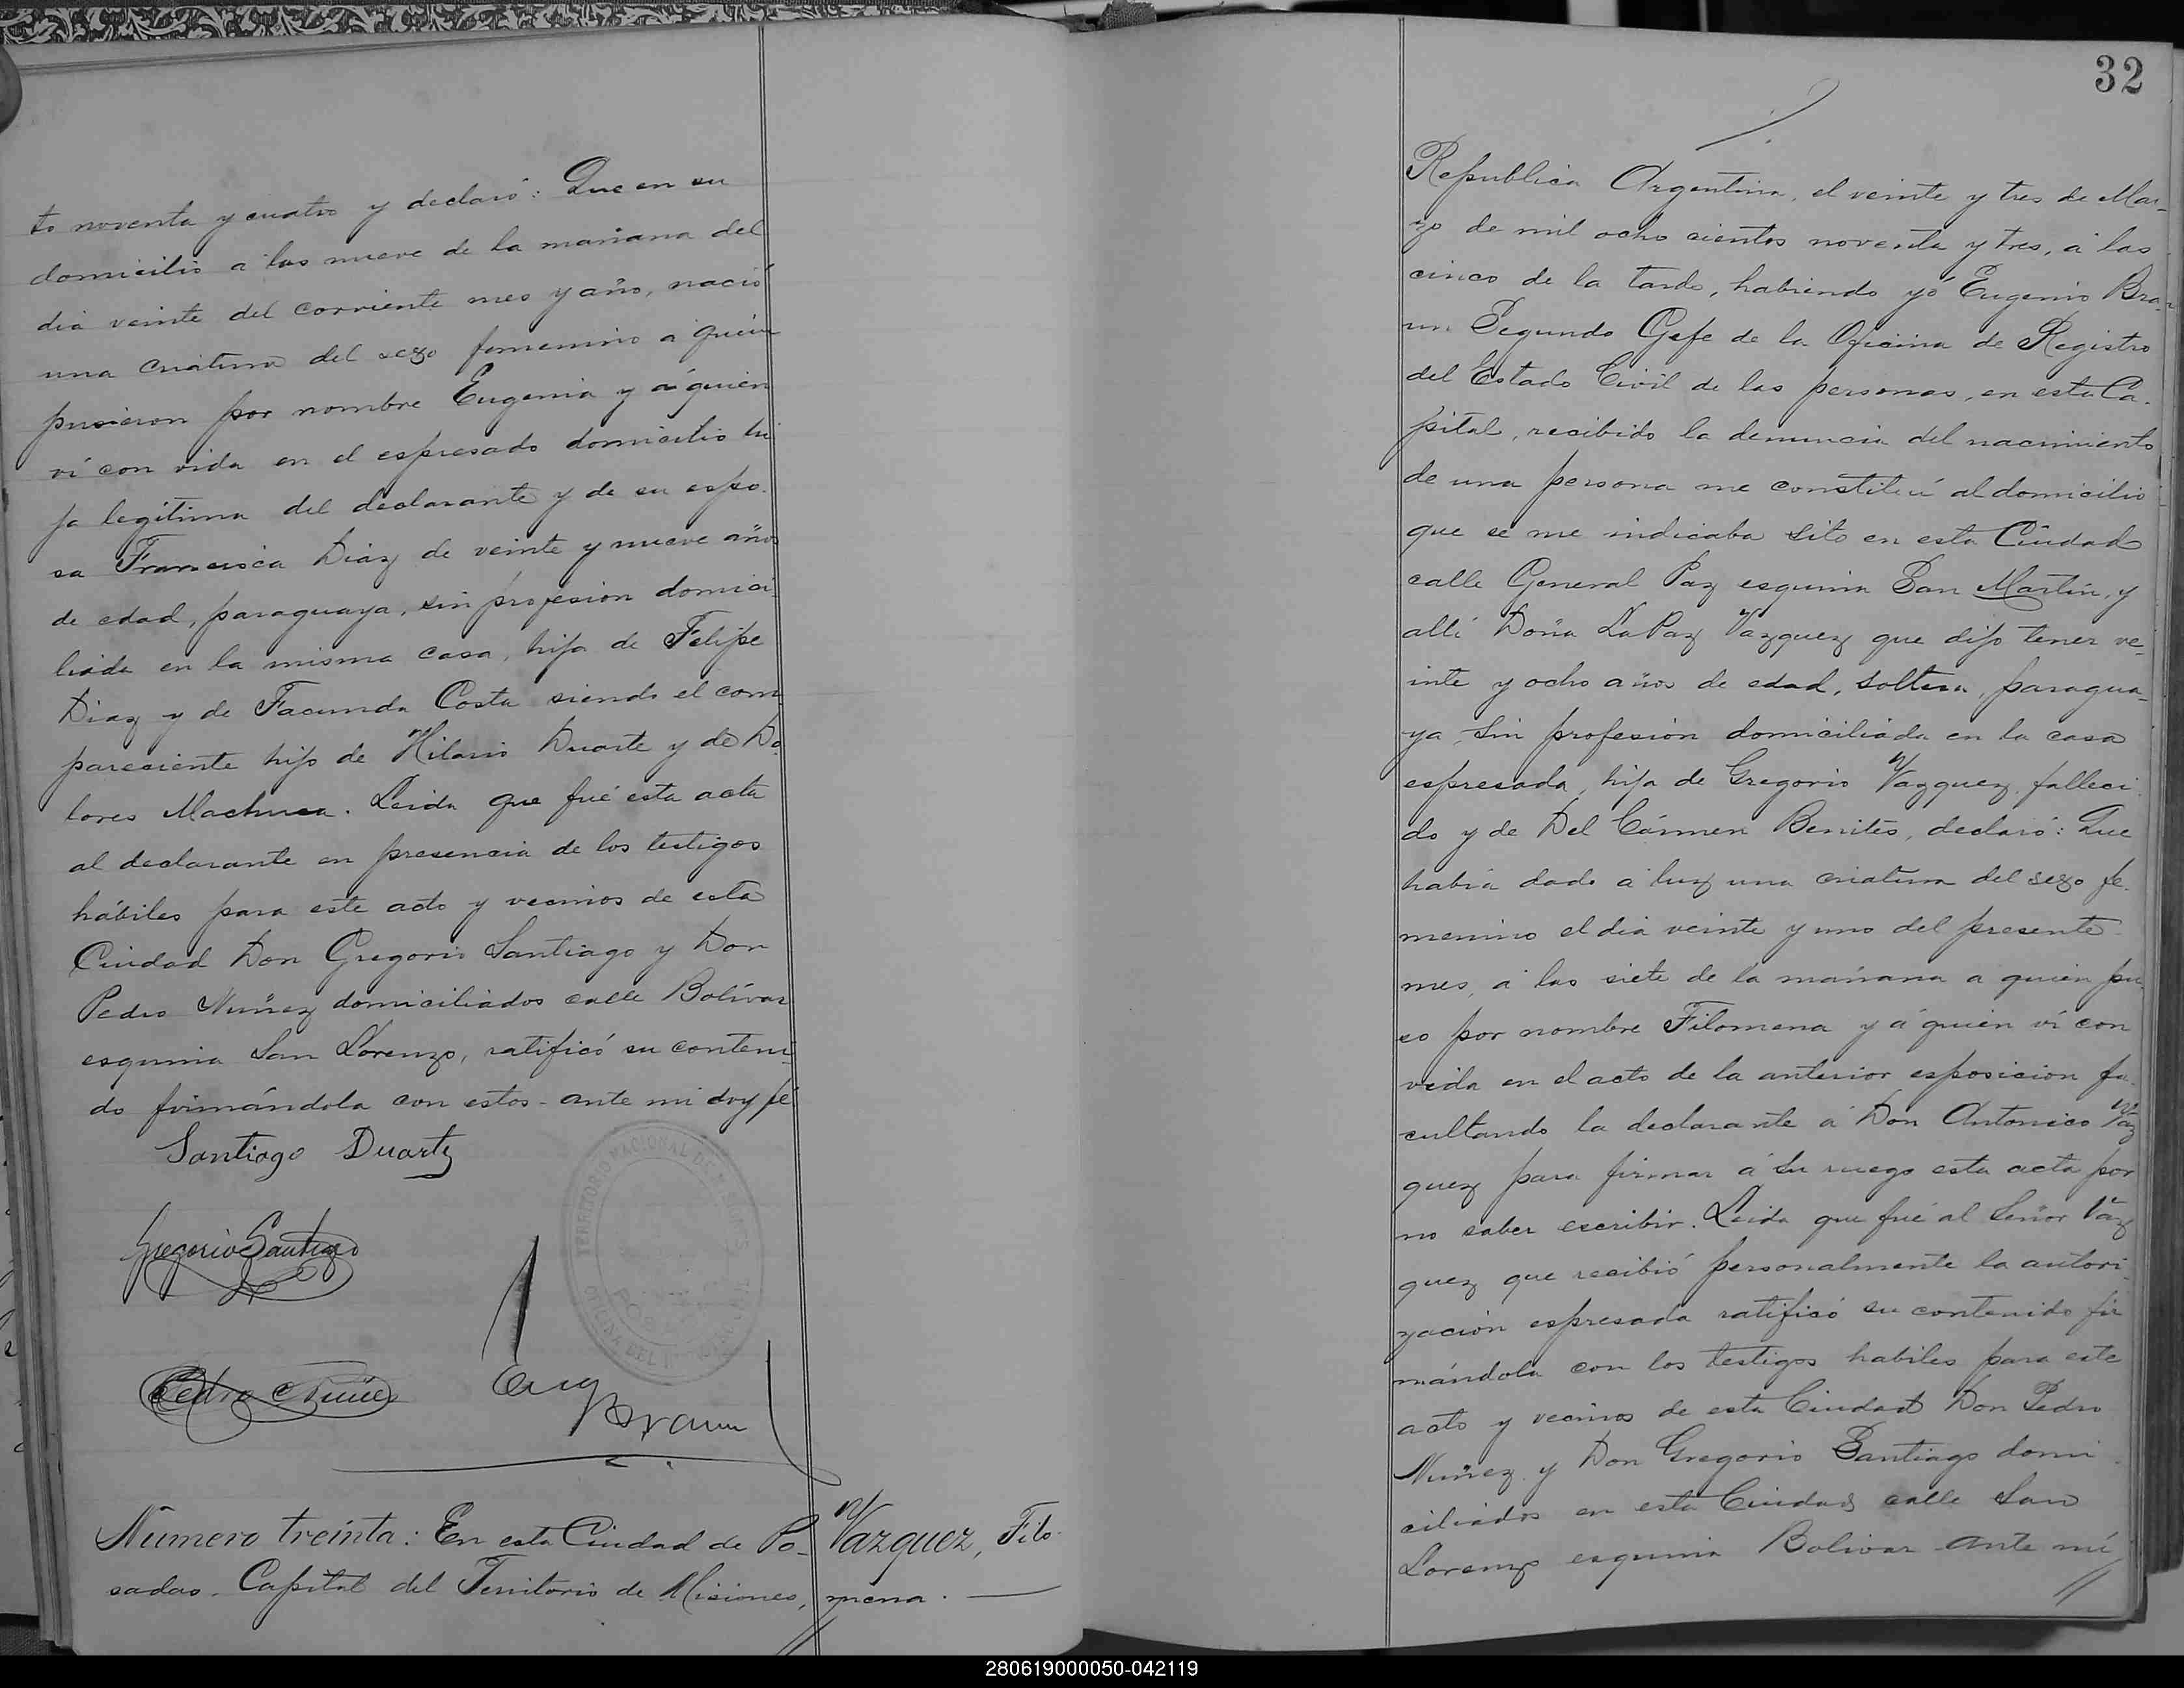 to noventa y cuatro y declaró: Que en su
domicilio a las nueve de la mañana del
dia veinte del corriente mes y año, nació
una criatura del sexo femenino a quien
pusieron por nombre Eugenia y a quien
ví con vida en el espresado domicilio hi
ja legítima del declarante y de su espo-
sa Francisca Diaz de veinte y nueve años
de edad, paraguaya, sin profesion domici-
liada en la misma casa, hija de Felipe
Diaz y de Facunda Costa siendo el com
pareciente hijo de Hilario Duarte y de Do-
lores Machuca. Leida que fué esta acta
al declarante en presencia de los testigos
hábiles para este acto y vecinos de esta
Ciudad Don Gregorio Santiago y Don
Pedro Nuñez domiciliados calle Bolívar
esquina San Lorenzo, ratificó su conteni-
do firmándola con estos ante mi doy fé
Santiago Duarte
Gregorio Santiago
Pedro Nuñez
Eug Braun
TERRITORIO NACIONAL DE MISIONES
OFICINA DEL
Número treinta: En esta Ciudad de Po-
sadas Capital del Territorio de Misiones,
Vazquez, Filo-
mena.
32
Republica Argentina, el veinte y tres de Mar-
zo de mil ocho cientos noventa y tres, á las
cinco de la tarde, habiendo yó Eugenio Bra-
un Segundo Gefe de la Oficina de Registro
del Estado Civil de las personas, en esta Ca-
pital, recibido la denuncia del nacimiento
de una persona me constituí al domicilio
que se me indicaba sito en esta Ciudad
calle General Paz esquina San Martin, y
allí Doña La Paz Vazquez que dijo tener ve-
inte y ocho años de edad, soltera, paragua-
ya, sin profesion domiciliada en la casa
espresada, hija de Gregorio Vazquez falleci-
do y de Del Cármen Benites, declaró: Que
habia dado á luz una criatura del sexo fe-
menino el dia veinte y uno del presente
mes, á las siete de la mañana a quien pu-
so por nombre Filomena y á quien ví con
vida en el acto de la anterior esposicion fa-
cultando la declarante á Don Antonico Vaz
quez para firmar á su ruego esta acta por
no saber escribir. Leida que fué al Señor Vaz
quez que recibió personalmente la autori-
zacion espresada ratificó su contenido fir
mándola con los testigos habiles para este
acto y vecinos de esta Ciudad Don Pedro
Nuñez y Don Gregorio Santiago domi-
ciliados en esta Ciudad calle San
Lorenzo esquina Bolivar ante mí
280619000050-042119